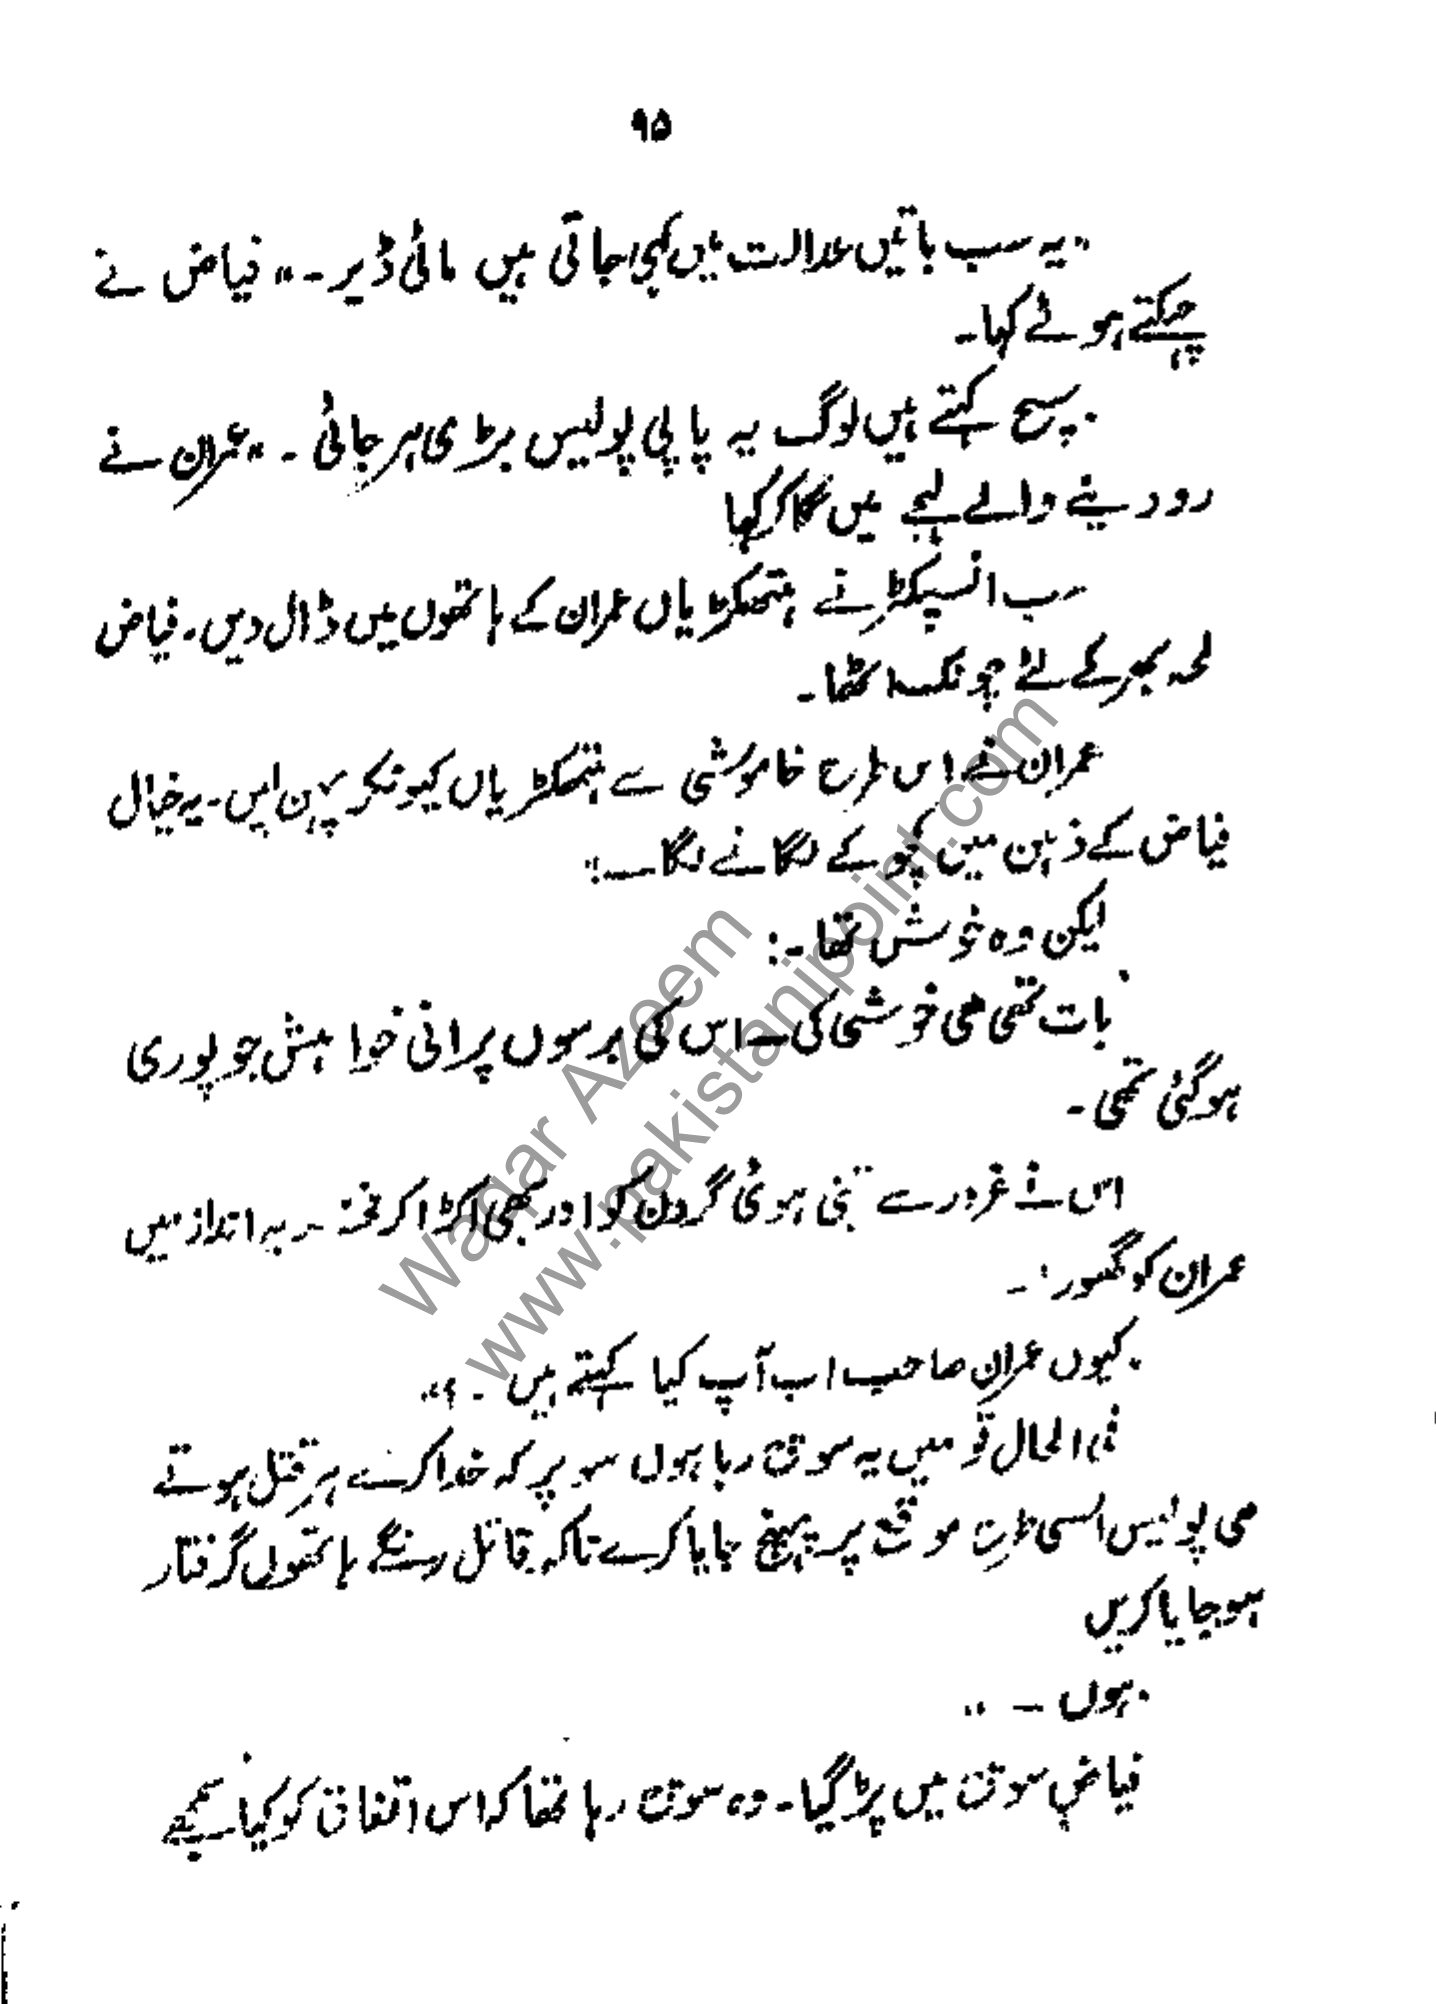 ۹۵
"یہ سب باتیں عدالت میں کہی جاتی ہیں مائی ڈیر۔" فیاض نے
چہکتے ہوئے کہا۔
"سچ کہتے ہیں لوگ یہ پاپی پولیس بڑی ہرجائی۔" عمران نے
رو دینے والے لہجے میں گا کر کہا
سب انسپکٹر نے ہتھکڑیاں عمران کے ہاتھوں میں ڈال دیں۔ فیاض
لمحہ بھر کے لئے چونک اٹھا۔
عمران نے اس طرح خاموشی سے ہتھکڑیاں کیونکر پہن لیں۔ یہ خیال
فیاض کے ذہن میں کچوکے لگانے لگا—:
لیکن وہ خوش تھا۔:
بات تھی ہی خوشی کی—اس کی برسوں پرانی خواہش جو پوری
ہوگئی تھی۔
اس نے غرور سے تنی ہوئی گردن کو اور بھی اکڑا کر فخریہ انداز میں
عمران کو گھورا۔
"کیوں عمران صاحب اب آپ کیا کہتے ہیں۔؟"
فی الحال تو میں یہ سوچ رہا ہوں سوپر کہ خدا کرے ہر قتل ہوتے
ہی پولیس اسی طرح موقع پر پہنچ جایا کرے تاکہ قاتل رنگے ہاتھوں گرفتار
ہوجایا کریں
"ہوں—"
فیاض سوچ میں پڑ گیا۔ وہ سوچ رہا تھا کہ اس اتفاق کو کیا سمجھے
Waqar Azeem
www.pakistanipoint.com